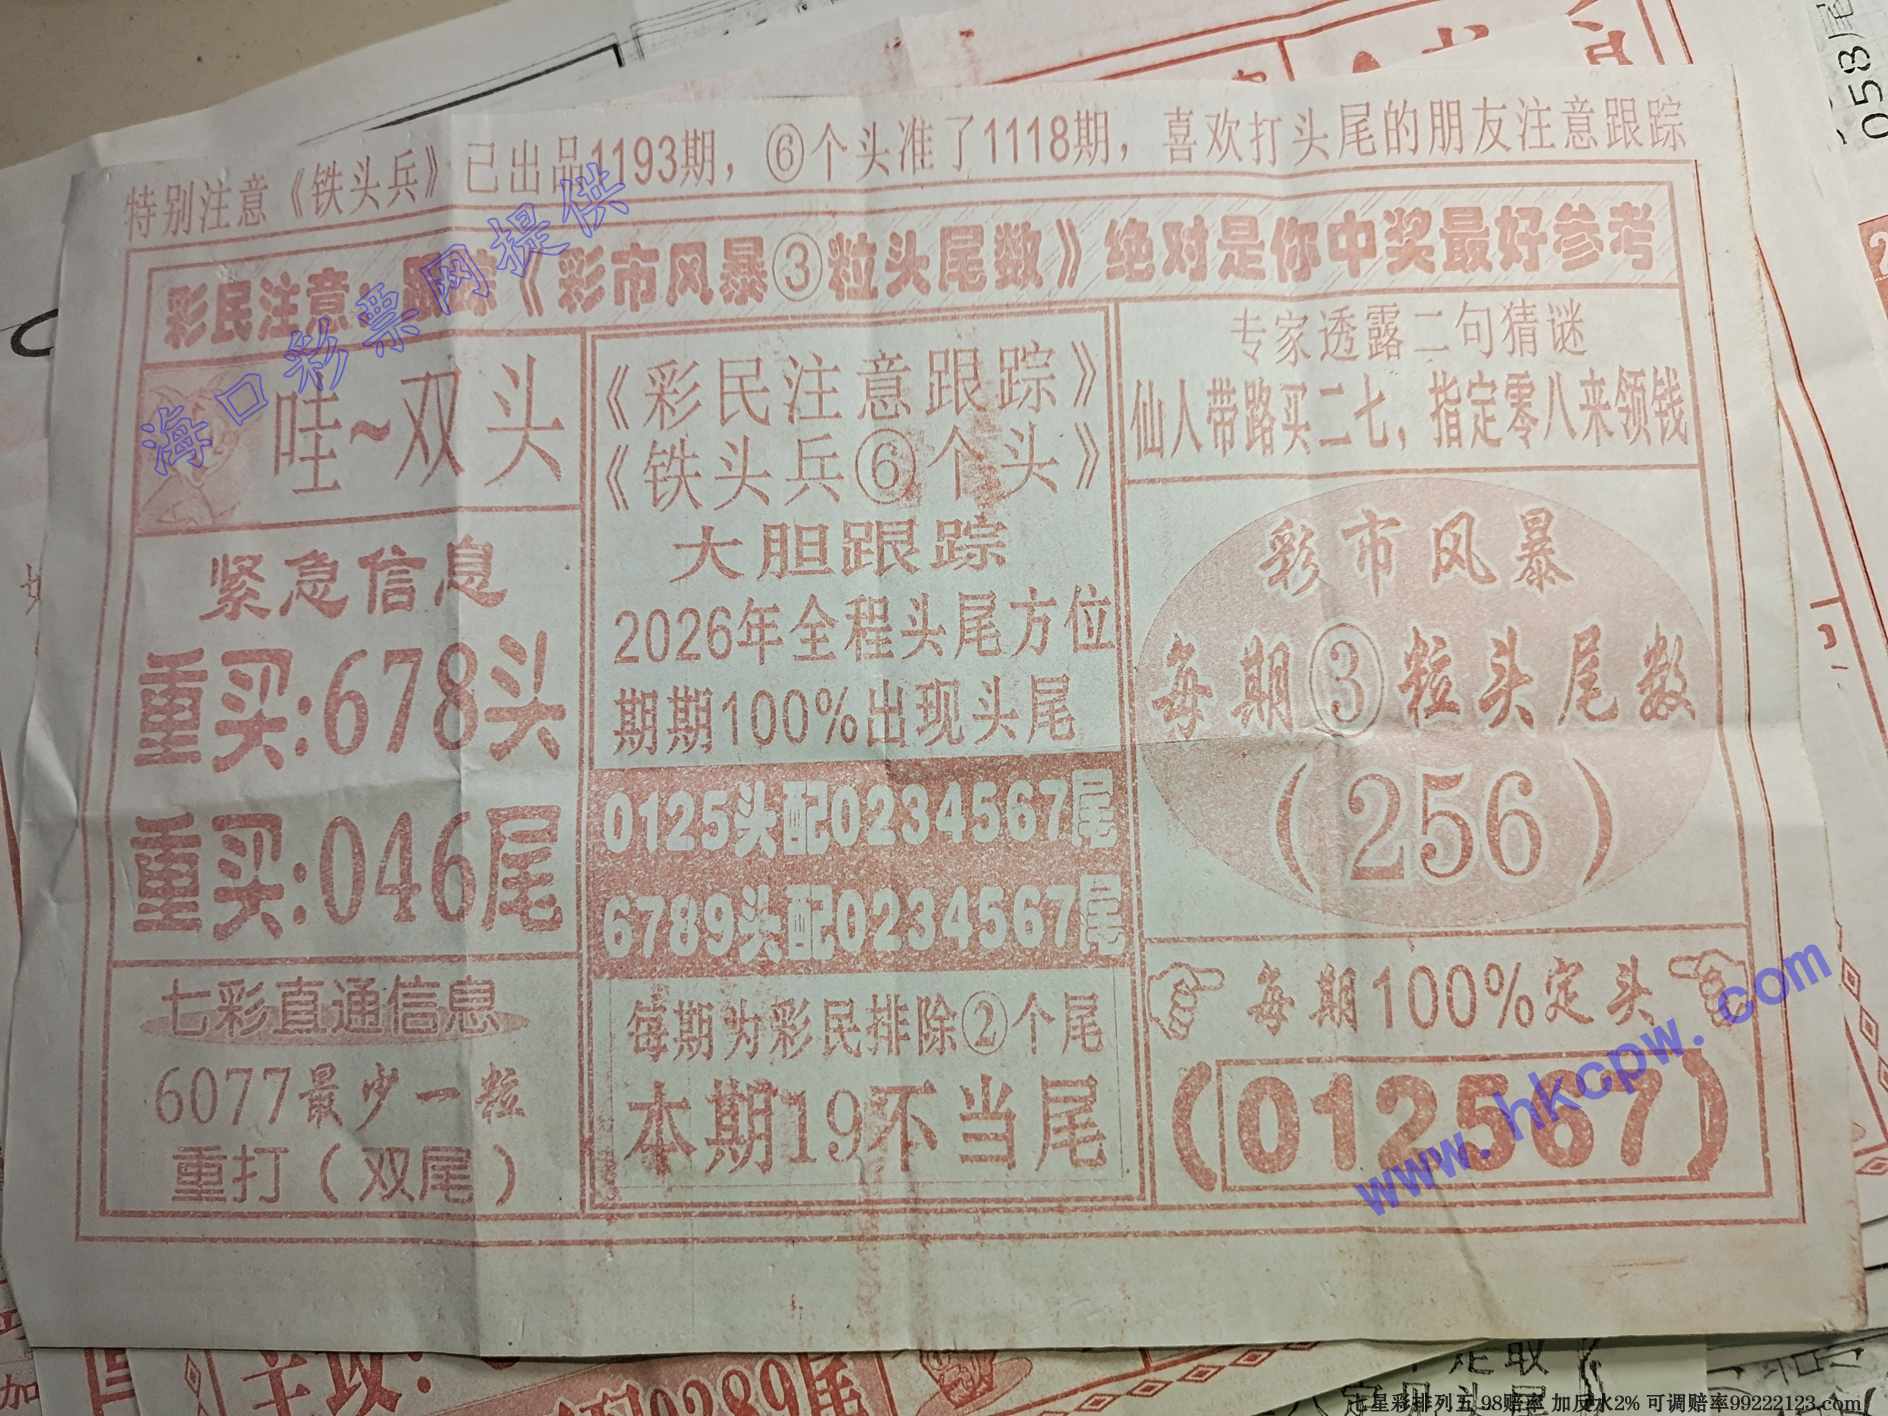 特别注意《铁头兵》已出品1193期，⑥个头准了1118期，喜欢打头尾的朋友注意跟踪
彩民注意：跟踪《彩市风暴③粒头尾数》绝对是你中奖最好参考
哇~双头
紧急信息
重买:678头
重买:046尾
七彩直通信息
6077最少一粒
重打（双尾）
《彩民注意跟踪》
《铁头兵⑥个头》
大胆跟踪
2026年全程头尾方位
期期100%出现头尾
0125头配0234567尾
6789头配0234567尾
每期为彩民排除②个尾
本期19不当尾
专家透露二句猜谜
仙人带路买二七，指定零八来领钱
彩市风暴
每期③粒头尾数
（256）
每期100%定头
（012567）
海口彩票网提供
www.hkcpw.com
058
主攻:
0289尾
加
七星彩排列五 98赔率 加反水2% 可调赔率99222123.com